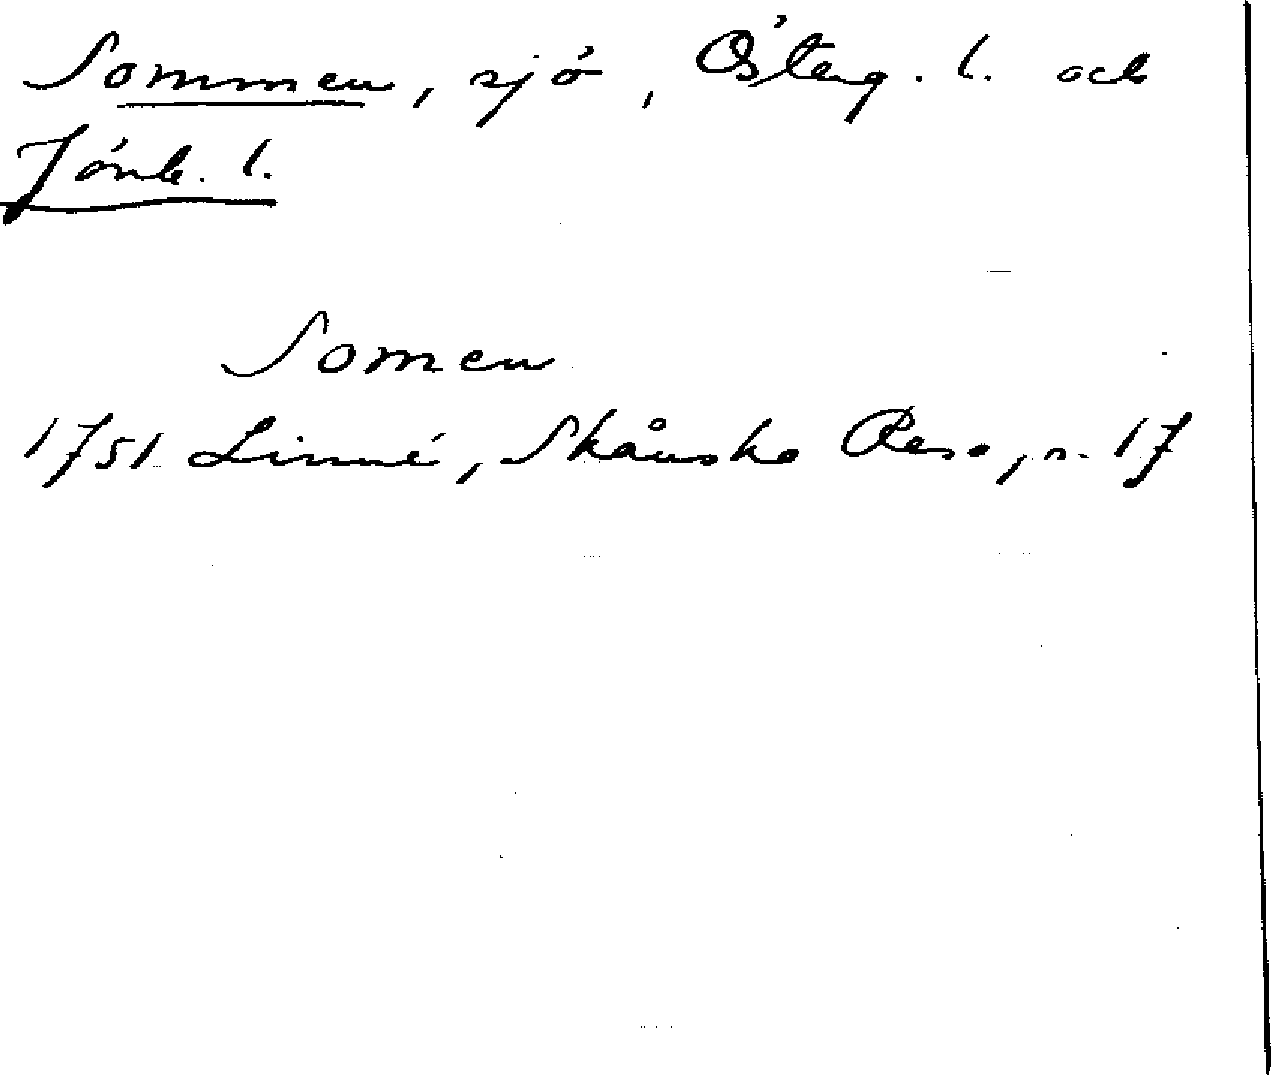 Sommen, sjö, Österg. l. och
Jönk. l.
Somen
1751 Linné, Skånska Resa, s. 17